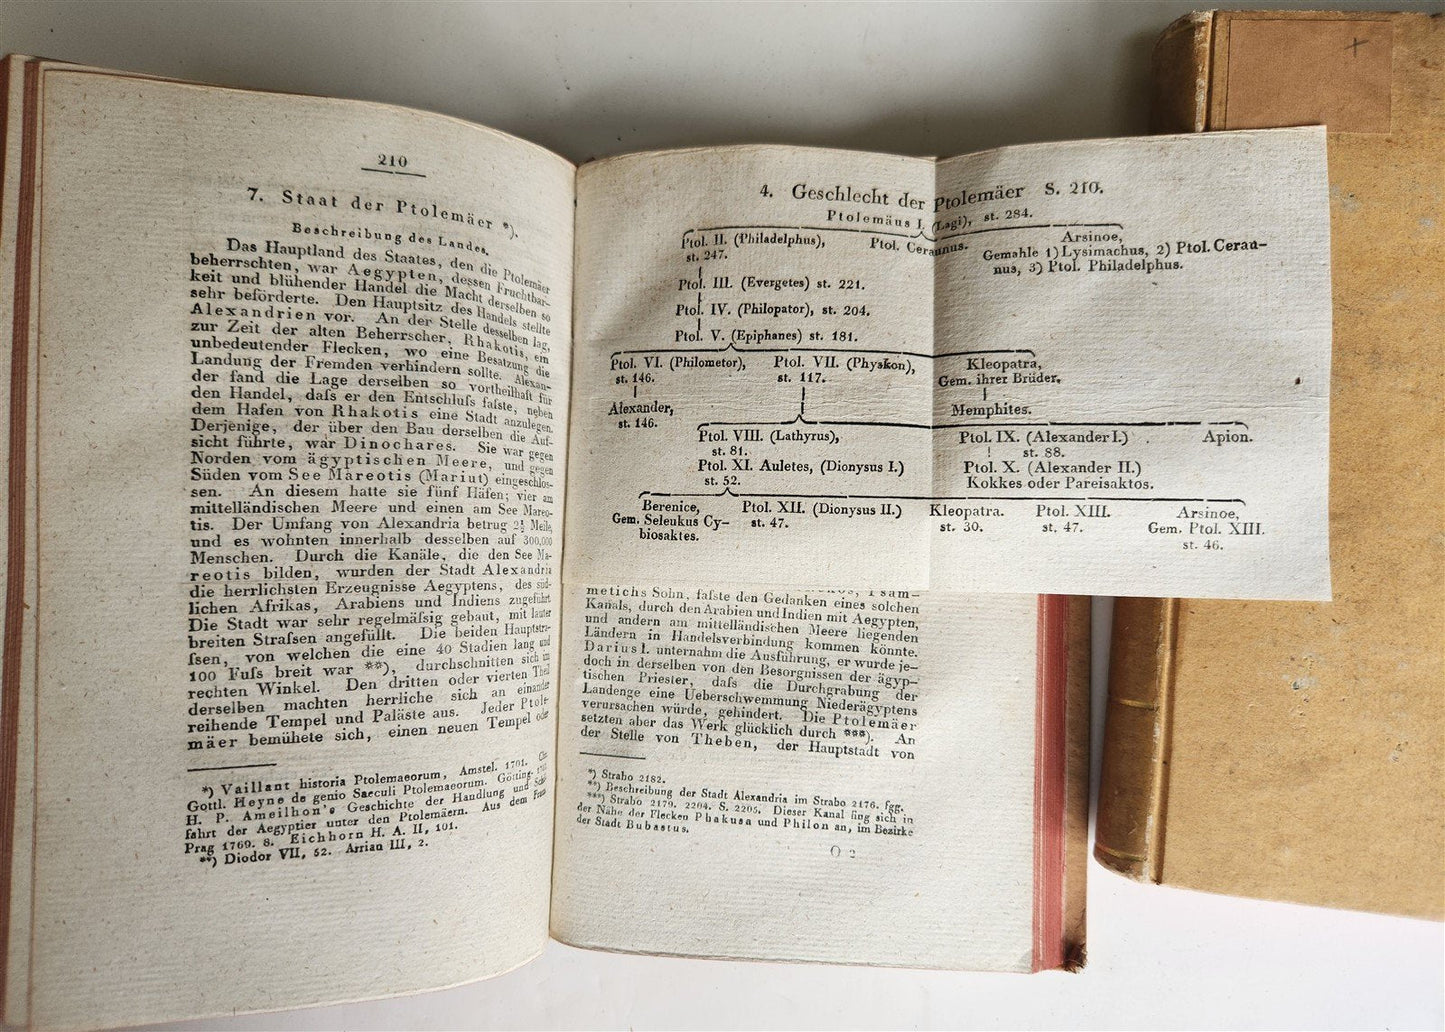 210
7. Staat der Ptolemäer *).
Beschreibung des Landes.
Das Hauptland des Staates, den die Ptolemäer
beherrschten, war Aegypten, dessen Fruchtbar-
keit und blühender Handel die Macht derselben so
sehr beförderte. Den Hauptsitz des Handels stellte
Alexandrien vor. An der Stelle desselben lag,
zur Zeit der alten Beherrscher, Rhakotis, ein
unbedeutender Flecken, wo eine Besatzung die
Landung der Fremden verhindern sollte. Alexan-
der fand die Lage derselben so vortheilhaft für
den Handel, daſs er den Entschluſs faſste, neben
dem Hafen von Rhakotis eine Stadt anzulegen.
Derjenige, der über den Bau derselben die Auf-
sicht führte, war Dinochares. Sie war gegen
Norden vom ägyptischen Meere, und gegen
Süden vom See Mareotis (Mariut) eingeschlos-
sen. An diesem hatte sie fünf Häfen; vier am
mittelländischen Meere und einen am See Mareo-
tis. Der Umfang von Alexandria betrug 2½ Meile,
und es wohnten innerhalb desselben auf 300,000
Menschen. Durch die Kanäle, die den See Ma-
reotis bilden, wurden der Stadt Alexandria
die herrlichsten Erzeugnisse Aegyptens, des süd-
lichen Afrikas, Arabiens und Indiens zugeführt
Die Stadt war sehr regelmäſsig gebaut, mit lauter
breiten Straſsen angefüllt. Die beiden Hauptstra-
ſsen, von welchen die eine 40 Stadien lang und
100 Fuſs breit war **), durchschnitten sich im
rechten Winkel. Den dritten oder vierten Theil
derselben machten herrliche sich an einander
reihende Tempel und Paläste aus. Jeder Ptole-
mäer bemühete sich, einen neuen Tempel oder
*) Vaillant historia Ptolemaeorum, Amstel. 1701. Chr.
Gottl. Heyne de genio Saeculi Ptolemaeorum. Götting.
H. P. Ameilhon's Geschichte der Handlung und Schif-
fahrt der Aegyptier unter den Ptolemäern. Aus dem Franz
Prag 1769. 8. Eichhorn H. A. II, 101.
**) Diodor VII, 52. Arrian III, 2.
4. Geschlecht der Ptolemäer S. 210.
Ptolemäus I. (Lagi), st. 284.
Ptol. II. (Philadelphus), Ptol. Ceraunus. Arsinoe,
st. 247. Gemahle 1) Lysimachus, 2) Ptol. Cerau-
nus, 3) Ptol. Philadelphus.
Ptol. III. (Evergetes) st. 221.
Ptol. IV. (Philopator), st. 204.
Ptol. V. (Epiphanes) st. 181.
Ptol. VI. (Philometor), Ptol. VII. (Physkon), Kleopatra,
st. 146. st. 117. Gem. ihrer Brüder.
Alexander, Memphites.
st. 146.
Ptol. VIII. (Lathyrus), Ptol. IX. (Alexander I.) Apion.
st. 81. st. 88.
Ptol. XI. Auletes, (Dionysus I.) Ptol. X. (Alexander II.)
st. 52. Kokkes oder Pareisaktos.
Berenice, Ptol. XII. (Dionysus II.) Kleopatra. Ptol. XIII. Arsinoe,
Gem. Seleukus Cy- st. 47. st. 30. st. 47. Gem. Ptol. XIII.
biosaktes. st. 46.
metichs Sohn, faſste den Gedanken eines solchen
Kanals, durch den Arabien und Indien mit Aegypten,
und andern am mittelländischen Meere liegenden
Ländern in Handelsverbindung kommen könnte.
Darius I. unternahm die Ausführung, er wurde je-
doch in derselben von den Besorgnissen der ägyp-
tischen Priester, daſs die Durchgrabung der
Landenge eine Ueberschwemmung Niederägyptens
verursachen würde, gehindert. Die Ptolemäer
setzten aber das Werk glücklich durch ***). An
der Stelle von Theben, der Hauptstadt von
*) Strabo 2182.
**) Beschreibung der Stadt Alexandria im Strabo 2176. fgg.
***) Strabo 2179. 2204. S. 2205. Dieser Kanal fing sich in
der Nähe der Flecken Phakusa und Philon an, im Bezirke
der Stadt Bubastus.
O 2